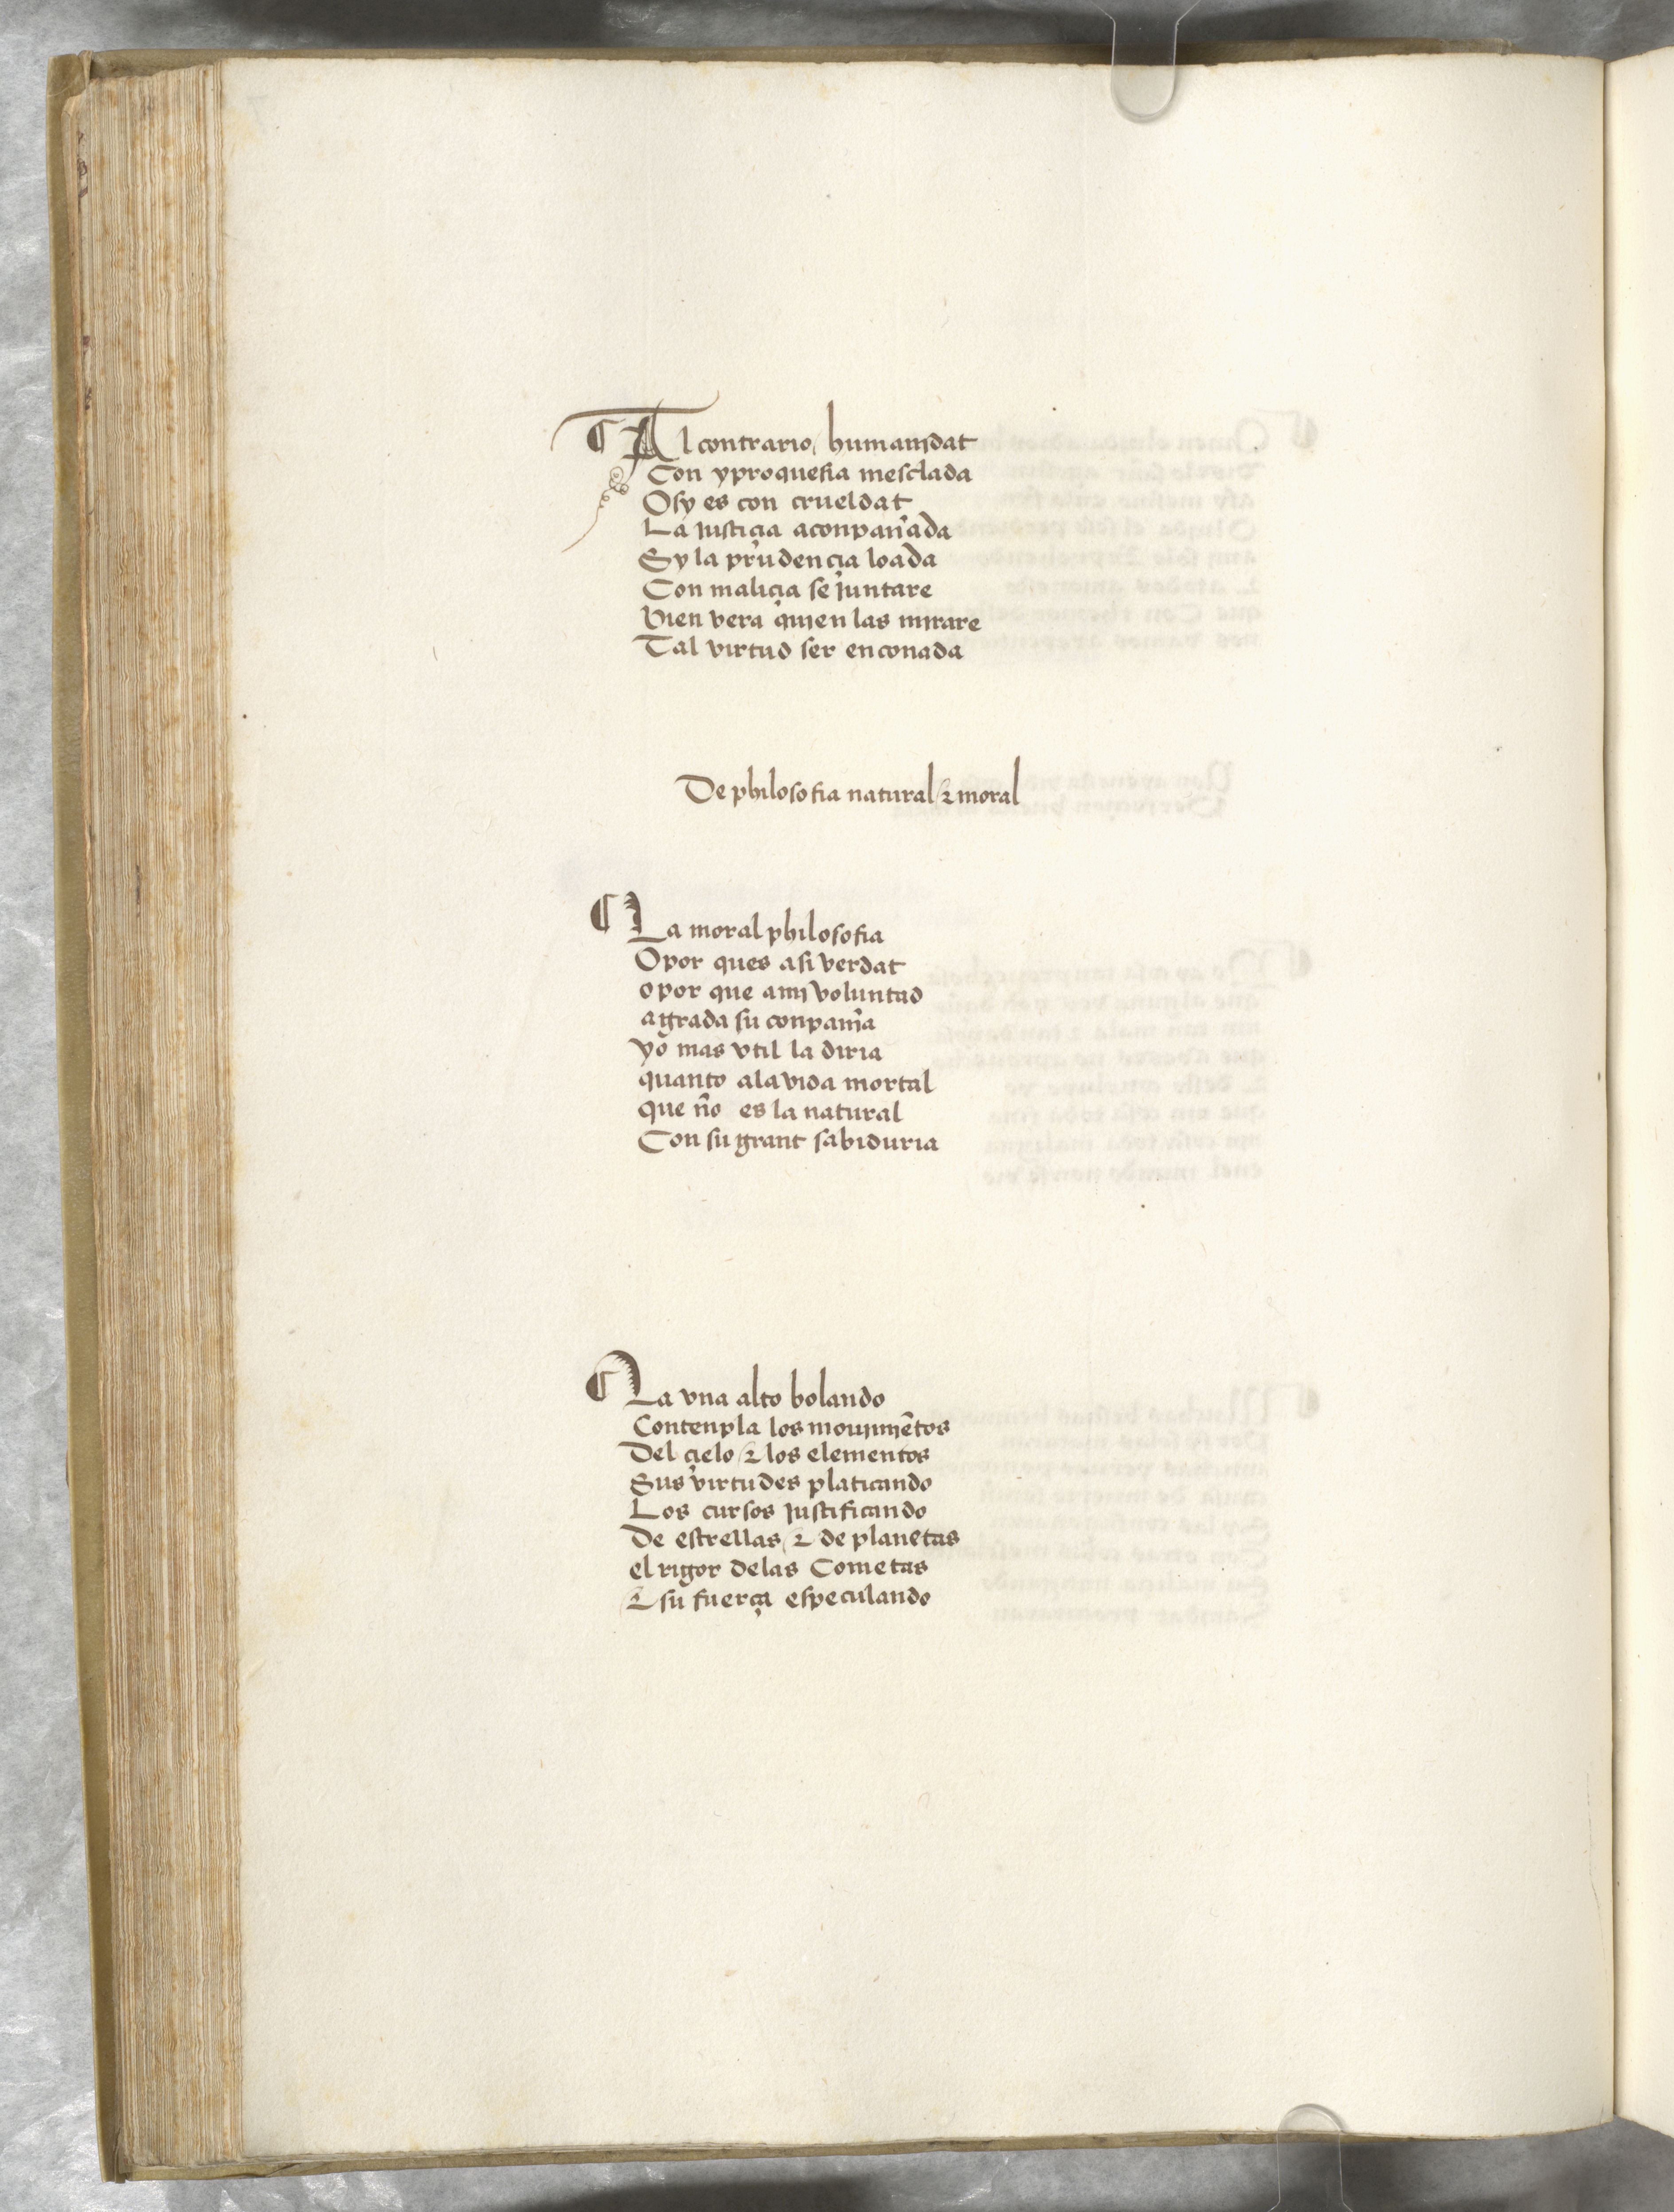 ¶ Al contrario / humanjdat
Con yproquesia mesclada
Osy es con crueldat
La justiçia aconpan̄ada
Sy la prudençia loada
Con maliçia se juntare
Vien vera quien las mjrare
Tal virtud ser enconada
De philosofia natural / ⁊ moral
¶ La moral philosofia
Opor ques asi verdat
opor que amj voluntad
agrada su conpan̄ia
yo mas vtil la diria
quanto ala vida mortal
que no es la natural
Con su grant sabiduria
¶ La vna alto bolando
Contenpla los moujmjẽtos
Del çielo / ⁊ los elementos
Sus virtudes platicando
Los cursos justificando
De estrellas / ⁊ de planetas
el rigor delas Cometas
⁊ su fuerça especulando